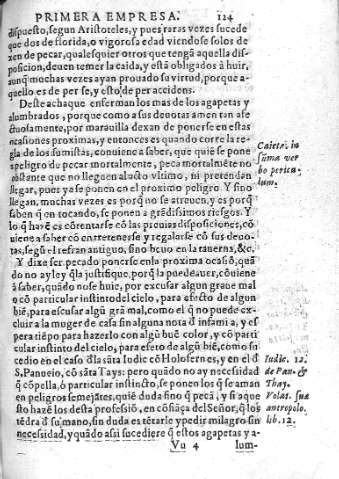 PRIMERA EMPRESA. 124
dispuesto, segun Aristoteles, y pues raras vezes sucede
que dos de florida, o vigorosa edad viendose solos de
xen de pecar, qualesquier otros que tengã aquella dis-
posicion, deuen temer la caida, y està obligados à huir,
aunq̃ muchas vezes ayan prouado su virtud, porque a-
quello es de per se, y esto de per accidens.
Deste achaque enferman los mas de los agapetas y
alumbrados, porque como a sus deuotas aman tan afe
ctuosamente, por marauilla dexan de ponerse en estas
ocasiones proximas, y entonces es quando corre la re-
gla de los sumistas, conuiene a saber, que quiẽ se pone
a peligro de pecar mortalmente, peca mortalmẽte no
obstante que no lleguen al acto vltimo, ni pretendan
llegar, pues ya se ponen en el proximo peligro. Y sino
llegan, muchas vezes es porq̃ no se atreuen, y es porq̃
saben q̃ en tocando, se ponen a grãdissimos riesgos. Y
lo q̃ hazẽ es cõrentarse cõ las preuias disposiciones, cõ
uiene a saber cõ entretenerse y regalarse cõ sus deuo-
tas, segũ el refran antiguo, sino beuo en la tauerna, &c.
Y dixe ser pecado ponerse en la proxima ocasiõ, quã
do no ay ley q̃ la justifique, porq̃ la puede auer, cõuiene
à saber, quãdo no se huie, por escusar algun graue mal
o cõ particular instinto del cielo, para efecto de algun
biẽ, para escusar algũ grã mal, como el q̃ no puede ex-
cluir a la muger de casa sin alguna nota d̃ infamia, y es
pera tiẽpo para hazerlo con algũ buẽ color, y cõ parti
cular instinto del cielo, para efeto de algũ biẽ, como su
cedio en el caso d̃ la sãta Iudic cõ Holofernes, y en el d̃
S. Panucio, cõ sãta Tays: pero quãdo no ay necessidad
q̃ cõpella, ó particular instincto, se ponen los q̃ se aman
en peligros semejãtes, quiẽ duda sino q̃ pecã, y si aque
sto hazẽ los desta professiõ, en cõfiãça del Señor, q̃ los
tẽdra d̃ su mano, sin duda es tẽtarle y pedir milagro sin
necessidad, y quãdo assi sucediere q̃ estos agapetas y a-
Vu 4 lum-
Caieta. in
suma ver
bo pericu-
lum.
Iudic. 12.
de Pan. &
Thay.
Volat. suæ
antropolo.
lib. 12.